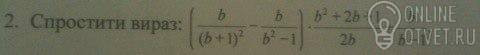 2. Спростити вираз: \left(\frac{b}{(b+1)^2} - \frac{b}{b^2-1}\right) \cdot \frac{b^2+2b+1}{2b}
ОНЛАЙН
OTVET.RU